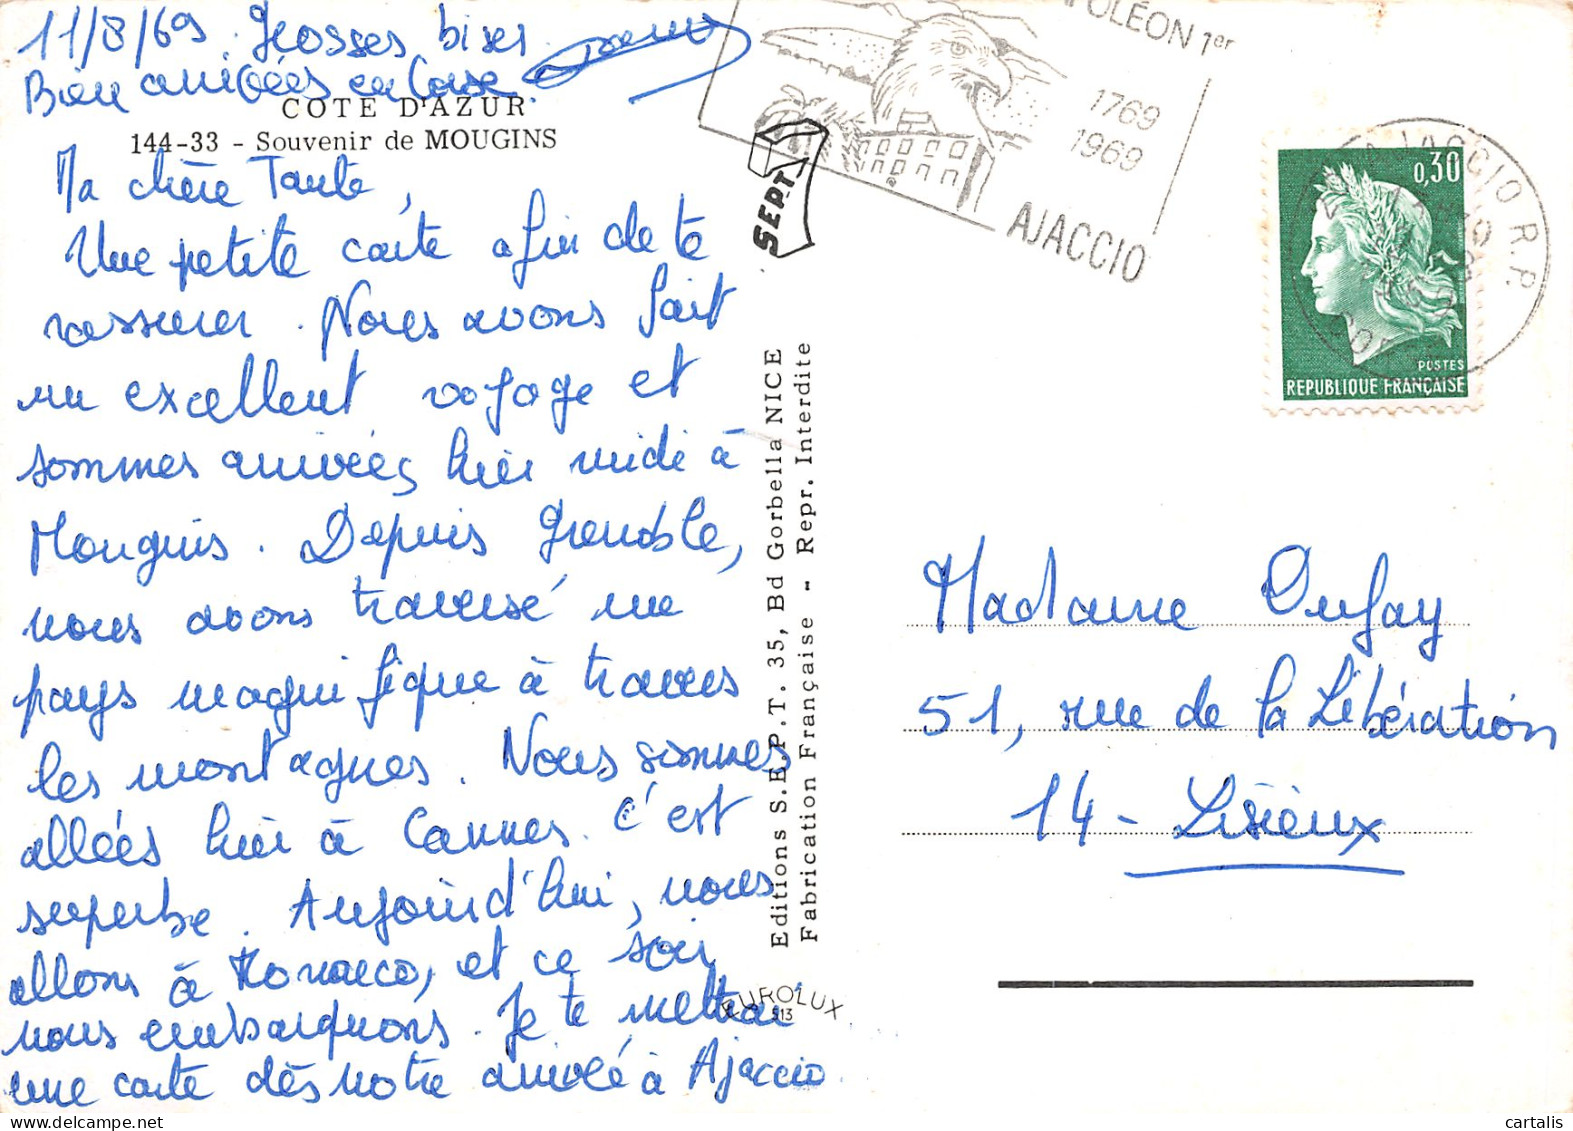 11/8/69. Grosses bises
Bien arrivées en Corse.
COTE D'AZUR
144-33 - Souvenir de MOUGINS
Ma chère Tante,
Une petite carte afin de te
rassurer. Nous avons fait
un excellent voyage et
sommes arrivées hier midi à
Mougins. Depuis Grenoble,
nous avons traversé un
pays magnifique à travers
les montagnes. Nous sommes
allées hier à Cannes. C'est
superbe. Aujourd'hui, nous
allons à Monaco, et ce soir
nous embarquons. Je te mettrai
une carte dès notre arrivée à Ajaccio.
SEPT
Editions S.E.P.T. 35, Bd Gorbella NICE
Fabrication Française - Repr. Interdite
EUROLUX
513
NAPOLÉON 1er
1769
1969
AJACCIO
AJACCIO R.P.
0,30
POSTES
REPUBLIQUE FRANÇAISE
Madame Dufay
51, rue de la Libération
14 - Lisieux
cartalis.com